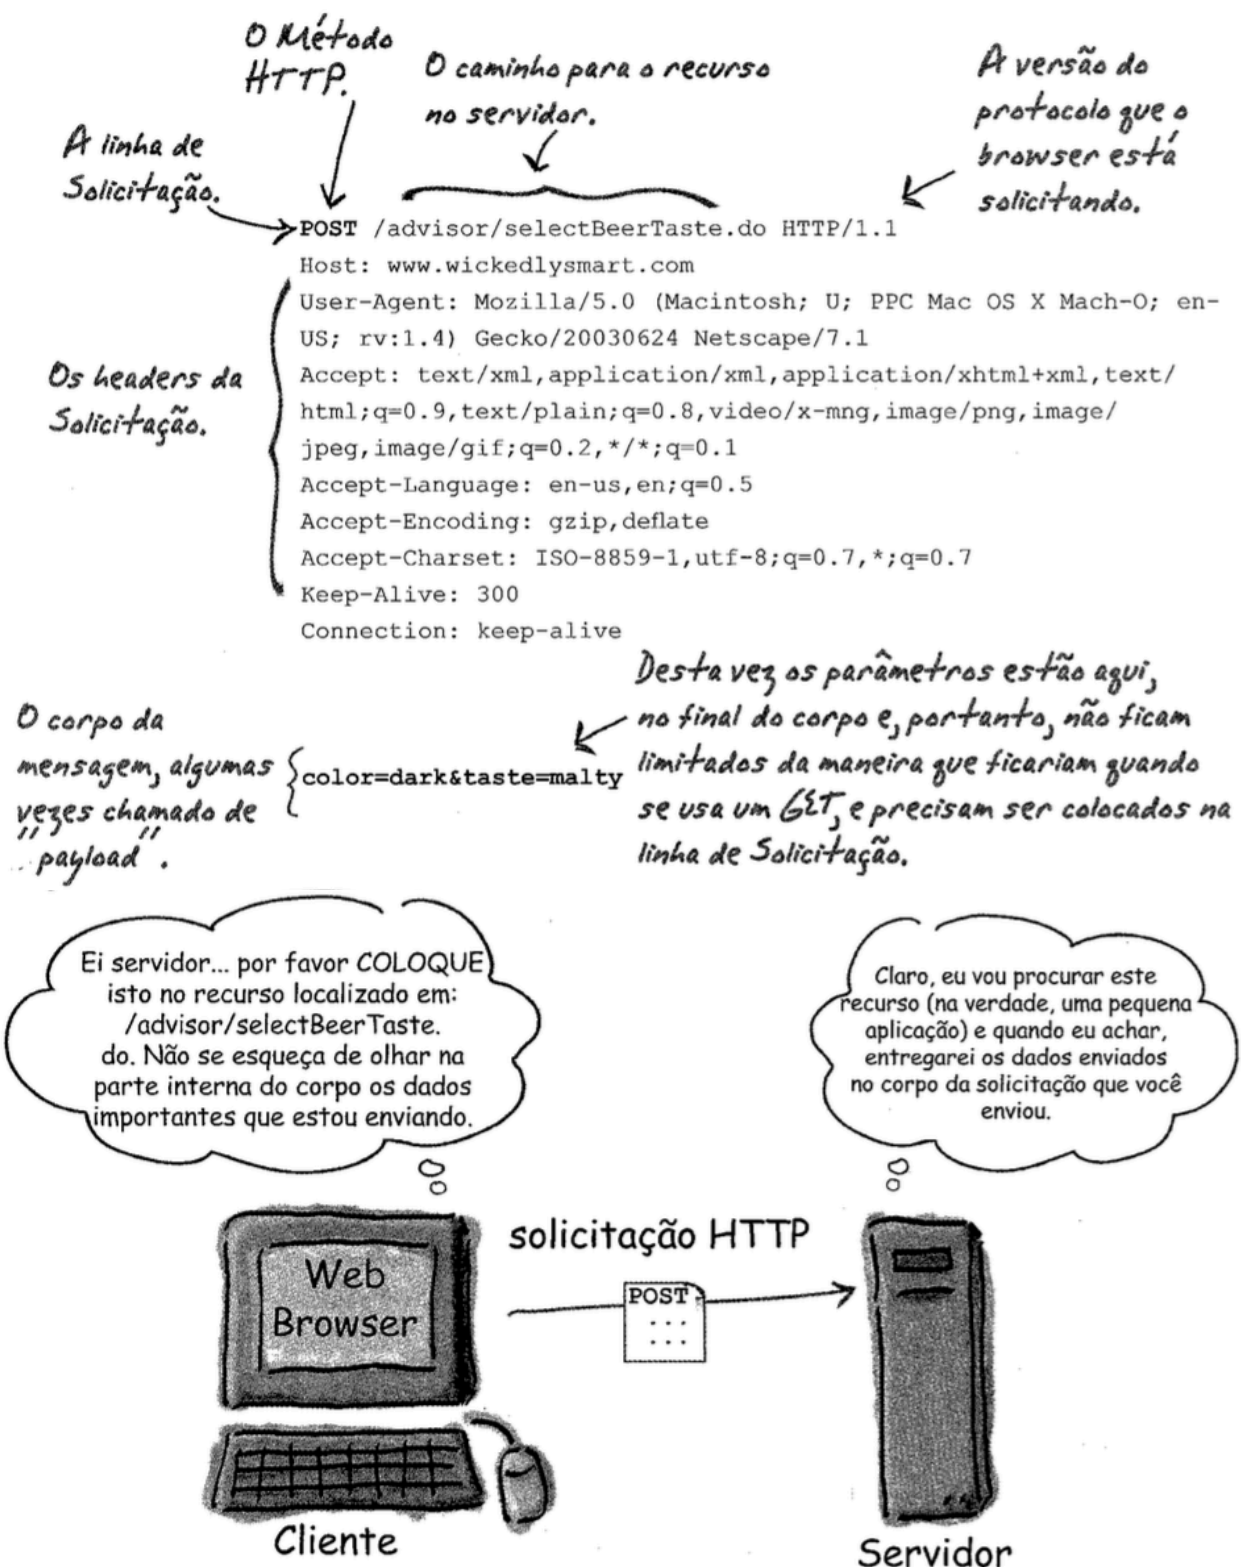 O Método
HTTP.
O caminho para o recurso
no servidor.
A versão do
protocolo que o
browser está
solicitando.
A linha de
Solicitação.
POST /advisor/selectBeerTaste.do HTTP/1.1
Host: www.wickedlysmart.com
User-Agent: Mozilla/5.0 (Macintosh; U; PPC Mac OS X Mach-O; en-
US; rv:1.4) Gecko/20030624 Netscape/7.1
Accept: text/xml,application/xml,application/xhtml+xml,text/
html;q=0.9,text/plain;q=0.8,video/x-mng,image/png,image/
jpeg,image/gif;q=0.2,*/*;q=0.1
Accept-Language: en-us,en;q=0.5
Accept-Encoding: gzip,deflate
Accept-Charset: ISO-8859-1,utf-8;q=0.7,*;q=0.7
Keep-Alive: 300
Connection: keep-alive
Os headers da
Solicitação.
O corpo da
mensagem, algumas
vezes chamado de
"payload".
color=dark&taste=malty
Desta vez os parâmetros estão aqui,
no final do corpo e, portanto, não ficam
limitados da maneira que ficariam quando
se usa um GET, e precisam ser colocados na
linha de Solicitação.
Ei servidor... por favor COLOQUE
isto no recurso localizado em:
/advisor/selectBeerTaste.
do. Não se esqueça de olhar na
parte interna do corpo os dados
importantes que estou enviando.
Claro, eu vou procurar este
recurso (na verdade, uma pequena
aplicação) e quando eu achar,
entregarei os dados enviados
no corpo da solicitação que você
enviou.
Web
Browser
solicitação HTTP
POST
...
...
Cliente
Servidor